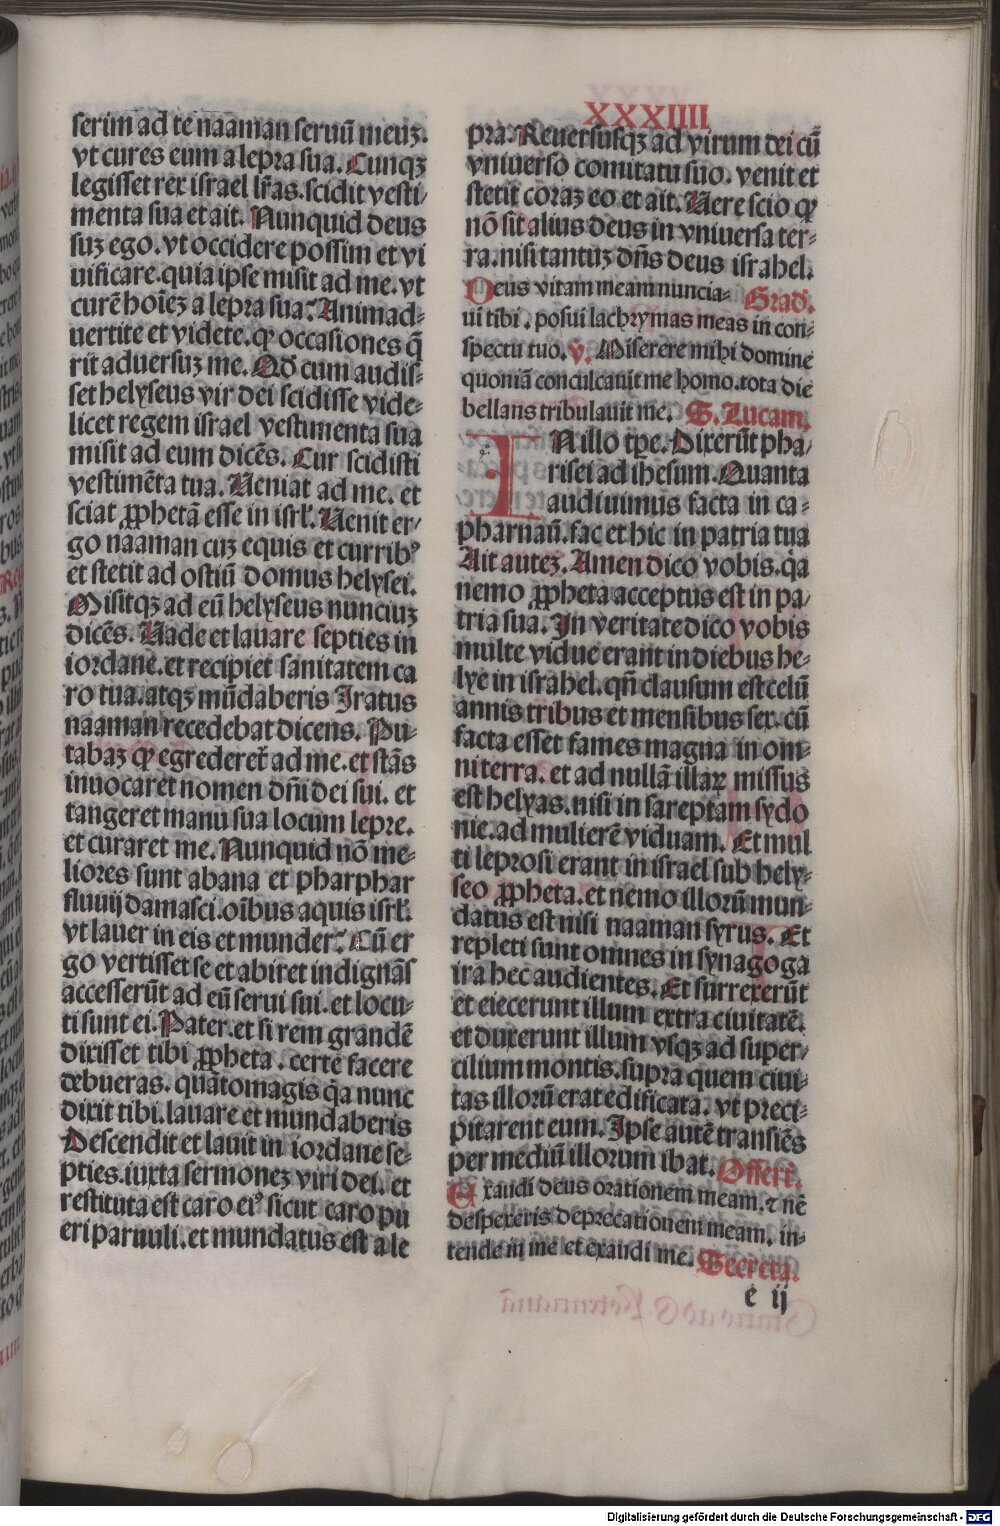 XXXIIII
serim ad te naaman seruū meuꝫ.
vt cures eum a lepra sua. Cunqꝫ
legisset rex israel lr̄as. scidit vesti⸗
menta sua et ait. Nunquid deus
suꝫ ego. vt occidere possim et vi
uificare. quia ipse misit ad me. vt
curē hoīeꝫ a lepra sua? Animad⸗
uertite et videte. ꝙ occasiones q̄
rit aduersuꝫ me. Qd̄ cum audis⸗
set helyseus vir dei scidisse vide⸗
licet regem israel vestimenta sua
misit ad eum dicēs. Cur scidisti
vestimēta tua. Veniat ad me. et
sciat ꝓphetā esse in isrl̄. Venit er⸗
go naaman cuꝫ equis et curribꝰ
et stetit ad ostiū domus helysei.
Misitqꝫ ad eū helyseus nunciuꝫ
dicēs. Vade et lauare septies in
iordane. et recipiet sanitatem ca
ro tua. atqꝫ mūdaberis Iratus
naaman recedebat dicens. Pu⸗
tabaꝫ ꝙ egrederet̄ ad me. et stās
inuocaret nomen dn̄i dei sui. et
tangeret manu sua locum lepre.
et curaret me. Nunquid nō me⸗
liores sunt abana et pharphar
fluuij damasci. oībus aquis isrl̄.
vt lauer in eis et munder? Cū er
go vertisset se et abiret indignās
accesserūt ad eū serui sui. et locu⸗
ti sunt ei. Pater. et si rem grandē
dixisset tibi ꝓpheta. certe facere
debueras. quātomagis q̄a nunc
dixit tibi. lauare et mundaberis
Descendit et lauit in iordane se⸗
pties. iuxta sermoneꝫ viri dei. et
restituta est caro eiꝰ sicut caro pu
eri paruuli. et mundatus est a le
pra. Reuersusqꝫ ad virum dei cū
vniuerso comitatu suo. venit et
stetit coraꝫ eo et ait. Vere scio ꝙ
nō sit alius deus in vniuersa ter⸗
ra. nisi tantuꝫ dn̄s deus israhel.
Deus vitam meam nuncia⸗ Grad̄.
ui tibi. posui lachrymas meas in con⸗
spectu tuo. v̄. Miserere mihi domine
quoniā conculcauit me homo. tota die
bellans tribulauit me. S. Lucam.
IN illo tp̄e. Dixerūt pha⸗
risei ad ihesum. Quanta
audiuimus facta in ca⸗
pharnaū. fac et hic in patria tua
Ait auteꝫ. Amen dico vobis. q̄a
nemo ꝓpheta acceptus est in pa⸗
tria sua. In veritate dico vobis
multe vidue erant in diebus he⸗
lye in israhel. qn̄ clausum est celū
annis tribus et mensibus sex. cū
facta esset fames magna in om⸗
ni terra. et ad nullā illaꝝ missus
est helyas. nisi in sareptam sydo
nie. ad mulierē viduam. Et mul
ti leprosi erant in israel sub hely⸗
seo ꝓpheta. et nemo illorū mun⸗
datus est nisi naaman syrus. Et
repleti sunt omnes in synagoga
ira hec audientes. Et surrexerūt
et eiecerunt illum extra ciuitatē.
et duxerunt illum vsqꝫ ad super⸗
cilium montis. supra quem ciui⸗
tas illorū erat edificata. vt preci⸗
pitarent eum. Ipse autē transiēs
per mediū illorum ibat. Offert̄.
Exaudi deus orationem meam. ⁊ nē
despexeris deprecationem meam. in⸗
tende in me et exaudi me. Secreta.
e ij
Digitalisierung gefördert durch die Deutsche Forschungsgemeinschaft - DFG